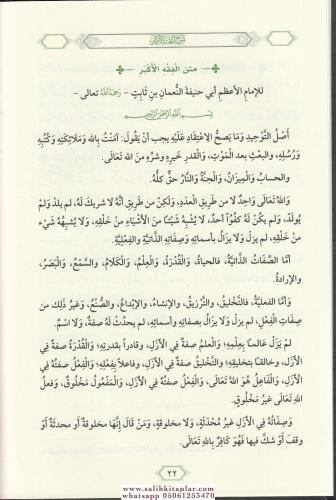 شرح الفقه الأكبر
متن الفِقْهِ الأَكْبَرِ
للإمامِ الأعظمِ أبي حنيفةَ النُّعمانِ بنِ ثابتٍ - رَحِمَهُ اللهُ تعالى -
بِسْمِ اللهِ الرَّحْمٰنِ الرَّحِيمِ
أَصْلُ التَّوْحِيدِ وَمَا يَصِحُّ الاعْتِقَادُ عَلَيْهِ يجب أَنْ يَقُولَ: آمَنْتُ بِالله وَمَلَائِكَتِهِ وَكُتُبِهِ
وَرُسُلِهِ، والبعْثِ بعد الْمَوْتِ، وَالْقَدرِ خَيرِهِ وشرِّهِ مِنَ الله تَعَالَى.
والحسابُ وَالْمِيزَانُ، وَالْجنَّةُ وَالنَّارُ حقٌّ كلُّهُ.
وَاللهُ تَعَالَى وَاحِدٌ لا من طَرِيقِ الْعددِ، وَلَكِنْ من طَرِيقِ أَنَّهُ لا شريكَ لَهُ، لم يلدْ وَلمْ
يُولَدْ، وَلم يكنْ لَهُ كفُوًا أحدٌ، لا يُشْبِهُ شَيْئًا مِنَ الأَشْيَاءِ مِنْ خلْقِهِ، وَلا يُشبِهُهُ شَيْءٌ
منْ خلْقِهِ، لم يزلْ وَلا يزَالُ بأسمائِهِ وَصِفَاتِهِ الذاتيَّةِ والفِعْلِيَّةِ.
أمَّا الصِّفَاتُ الذَّاتِيَّةُ، فالحياةُ، وَالْقُدْرَةُ، وَالْعِلْمُ، وَالْكَلَامُ، والسَّمْعُ، وَالْبَصَرُ،
والإرادةُ.
وَأمَّا الفعليَّةُ، فالتَّخْلِيقُ، والتَّرْزِيقُ، والإنشاءُ، والإبْدَاعُ، والصُّنْعُ، وَغيرُ ذَلِك من
صِفَاتِ الْفِعْلِ، لم يزلْ وَلا يزَالُ بصفاتِهِ وأسمائِهِ، لم يحدثْ لَهُ صفةٌ، وَلا اسْمٌ.
لمْ يَزَلْ عَالمًا بِعِلْمِهِ؛ وَالْعلمُ صفةٌ فِي الأزَلِ، وقادرًا بقدرتِهِ؛ وَالْقُدْرَةُ صفةٌ فِي
الأزَلِ، وخالقًا بتخليقِهِ؛ والتَّخْلِيقُ صفةٌ فِي الأزَلِ، وفاعلاً بِفِعْلِهِ؛ وَالْفِعْلُ صفتُهُ فِي
الأَزَلِ، وَالْفَاعِلُ هُوَ اللهُ تَعَالَى، وَالْفِعْلُ صفتُهُ فِي الأَزَلِ، وَالْمَفْعُولُ مَخْلُوقٌ، وَفعلُ
اللهِ تَعَالَى غيرُ مَخْلُوقٍ.
وَصِفَاتُهُ فِي الأَزَلِ غيرُ مُحْدَثَةٍ، وَلا مخلوقةٍ، وَمَنْ قَالَ إنَّهَا مخلوقةٌ أو محدثةٌ أَوْ
وقفَ أَوْ شكَّ فيها فَهُوَ كَافِرٌ بِالله تَعَالَى.
٢٢
www.salihkitaplar.com
whatsapp 05061253470